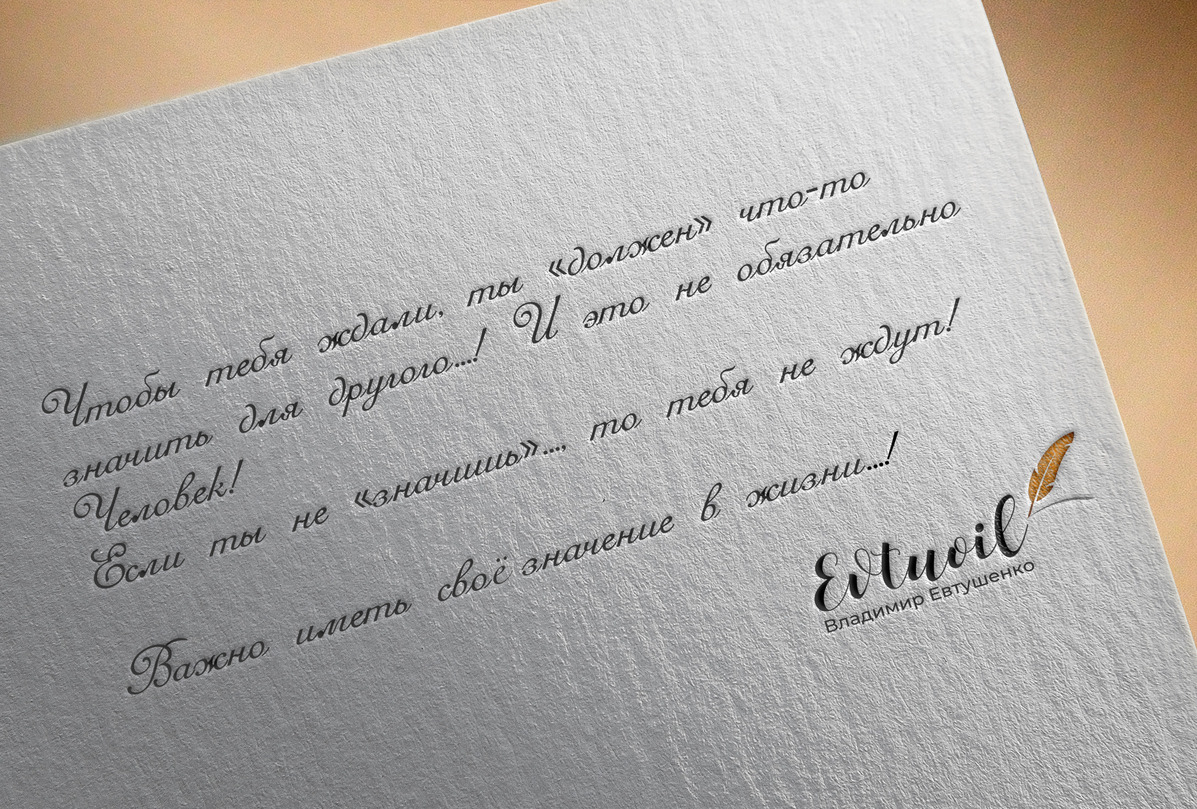 Чтобы тебя ждали, ты «должен» что-то
значить для другого...! И это не обязательно
Человек!
Если ты не «значишь»..., то тебя не ждут!
Важно иметь своё значение в жизни...!
Evtuvil
Владимир Евтушенко